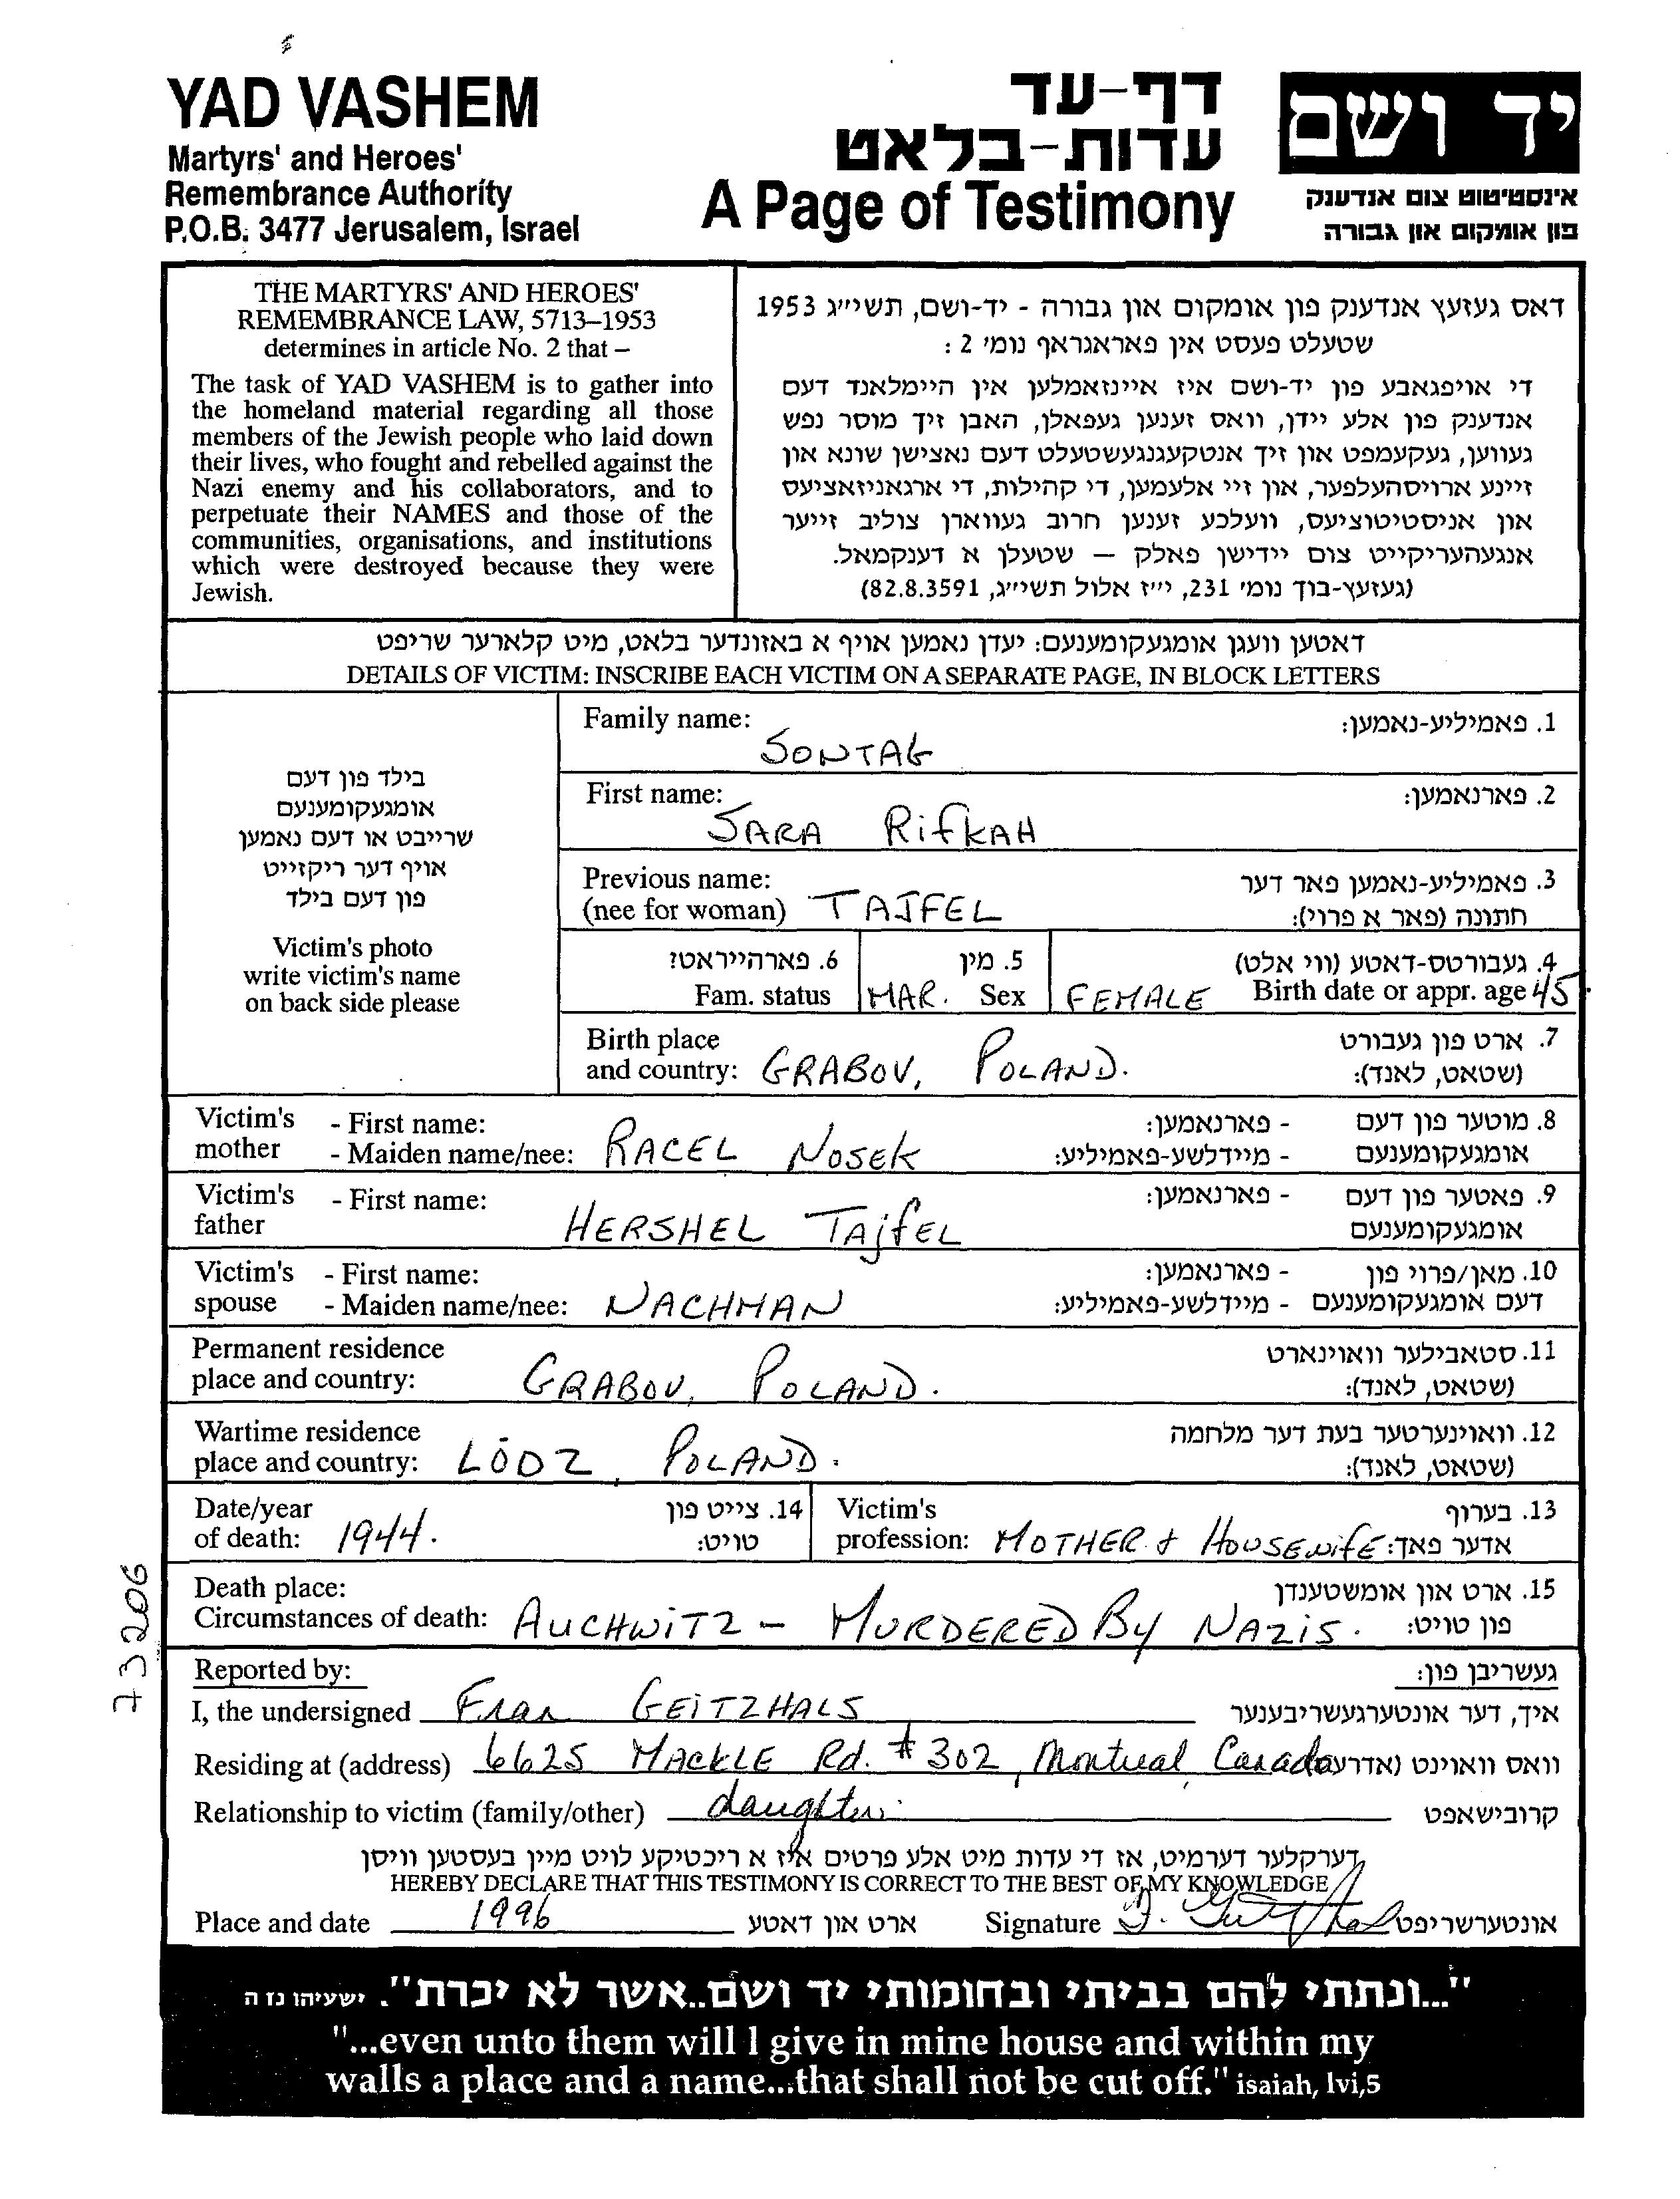 YAD VASHEM
Martyrs' and Heroes'
Remembrance Authority
P.O.B. 3477 Jerusalem, Israel
דף-עד
עדות-בלאט
A Page of Testimony
יד ושם
אינסטיטוט צום אנדענק
פון אומקום און גבורה
THE MARTYRS' AND HEROES'
REMEMBRANCE LAW, 5713–1953
determines in article No. 2 that –
The task of YAD VASHEM is to gather into
the homeland material regarding all those
members of the Jewish people who laid down
their lives, who fought and rebelled against the
Nazi enemy and his collaborators, and to
perpetuate their NAMES and those of the
communities, organisations, and institutions
which were destroyed because they were
Jewish.
דאס געזעץ אנדענק פון אומקום און גבורה - יד-ושם, תשי״ג 1953
שטעלט פעסט אין פאראגראף נומ׳ 2 :
די אויפגאבע פון יד-ושם איז איינזאמלען אין היימלאנד דעם
אנדענק פון אלע יידן, וואס זענען געפאלן, האבן זיך מוסר נפש
געווען, געקעמפט און זיך אנטקעגנגעשטעלט דעם נאצישן שונא און
זיינע ארויסהעלפער, און זיי אלעמען, די קהילות, די ארגאניזאציעס
און אניסטיטוציעס, וועלכע זענען חרוב געווארן צוליב זייער
אנגעהעריקייט צום יידישן פאלק — שטעלן א דענקמאל.
(געזעץ-בוך נומ׳ 231, י״ז אלול תשי״ג, 82.8.3591)
דאטען וועגן אומגעקומענעם: יעדן נאמען אויף א באזונדער בלאט, מיט קלארער שריפט
DETAILS OF VICTIM: INSCRIBE EACH VICTIM ON A SEPARATE PAGE, IN BLOCK LETTERS
בילד פון דעם
אומגעקומענעם
שרייבט או דעם נאמען
אויף דער ריקזייט
פון דעם בילד
Victim's photo
write victim's name
on back side please
Family name: SONTAG 1. פאמיליע-נאמען:
First name: SARA RifKAH 2. פארנאמען:
Previous name: 3. פאמיליע-נאמען פאר דער
(nee for woman) TAJFEL חתונה (פאר א פרוי):
6. פארהייראט? 5. מין 4. געבורטס-דאטע (ווי אלט)
Fam. status MAR. Sex FEMALE Birth date or appr. age 45
Birth place 7. ארט פון געבורט
and country: GRABOV, POLAND. (שטאט, לאנד):
Victim's - First name: - פארנאמען: 8. מוטער פון דעם
mother - Maiden name/nee: RACEL NOSEK - מיידלשע-פאמיליע: אומגעקומענעם
Victim's - First name: - פארנאמען: 9. פאטער פון דעם
father HERSHEL TAjfEL אומגעקומענעם
Victim's - First name: - פארנאמען: 10. מאן/פרוי פון
spouse - Maiden name/nee: NACHMAN - מיידלשע-פאמיליע: דעם אומגעקומענעם
Permanent residence 11. סטאבילער וואוינארט
place and country: GRABOV, POLAND. (שטאט, לאנד):
Wartime residence 12. וואוינערטער בעת דער מלחמה
place and country: LÓDZ, POLAND. (שטאט, לאנד):
Date/year 14. צייט פון Victim's 13. בערוף
of death: 1944. טויט: profession: MOTHER & HOUSEwifE אדער פאך:
Death place: 15. ארט און אומשטענדן
Circumstances of death: AUCHWITZ – MURDERED By NAZiS. פון טויט:
73206
Reported by: געשריבן פון:
I, the undersigned Fran GEITZHALS איך, דער אונטערגעשריבענער
Residing at (address) 6625 MACKLE Rd. #302, Montreal, Canada וואס וואוינט (אדרעס
Relationship to victim (family/other) daughter. קרובישאפט
דערקלער דערמיט, אז די עדות מיט אלע פרטים איז א ריכטיקע לויט מיין בעסטען וויסן
HEREBY DECLARE THAT THIS TESTIMONY IS CORRECT TO THE BEST OF MY KNOWLEDGE
Place and date 1996 ארט און דאטע Signature F. Geitzhals אונטערשריפט
"...ונתתי להם בביתי ובחומותי יד ושם..אשר לא יכרת". ישעיהו נז ה
"...even unto them will I give in mine house and within my
walls a place and a name...that shall not be cut off." isaiah, lvi,5